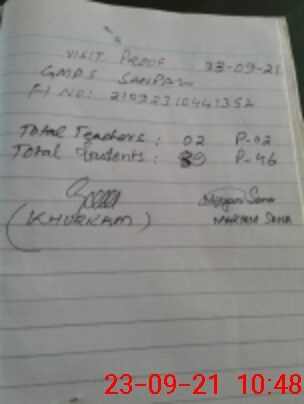 VISIT PROOF 23-09-21
GMPS SANPAL
FI NO: 21092310441352
Total Teachers: 02 P-02
Total Students: P-46
(KHURRAM) MARYAM SANA
23-09-21 10:48